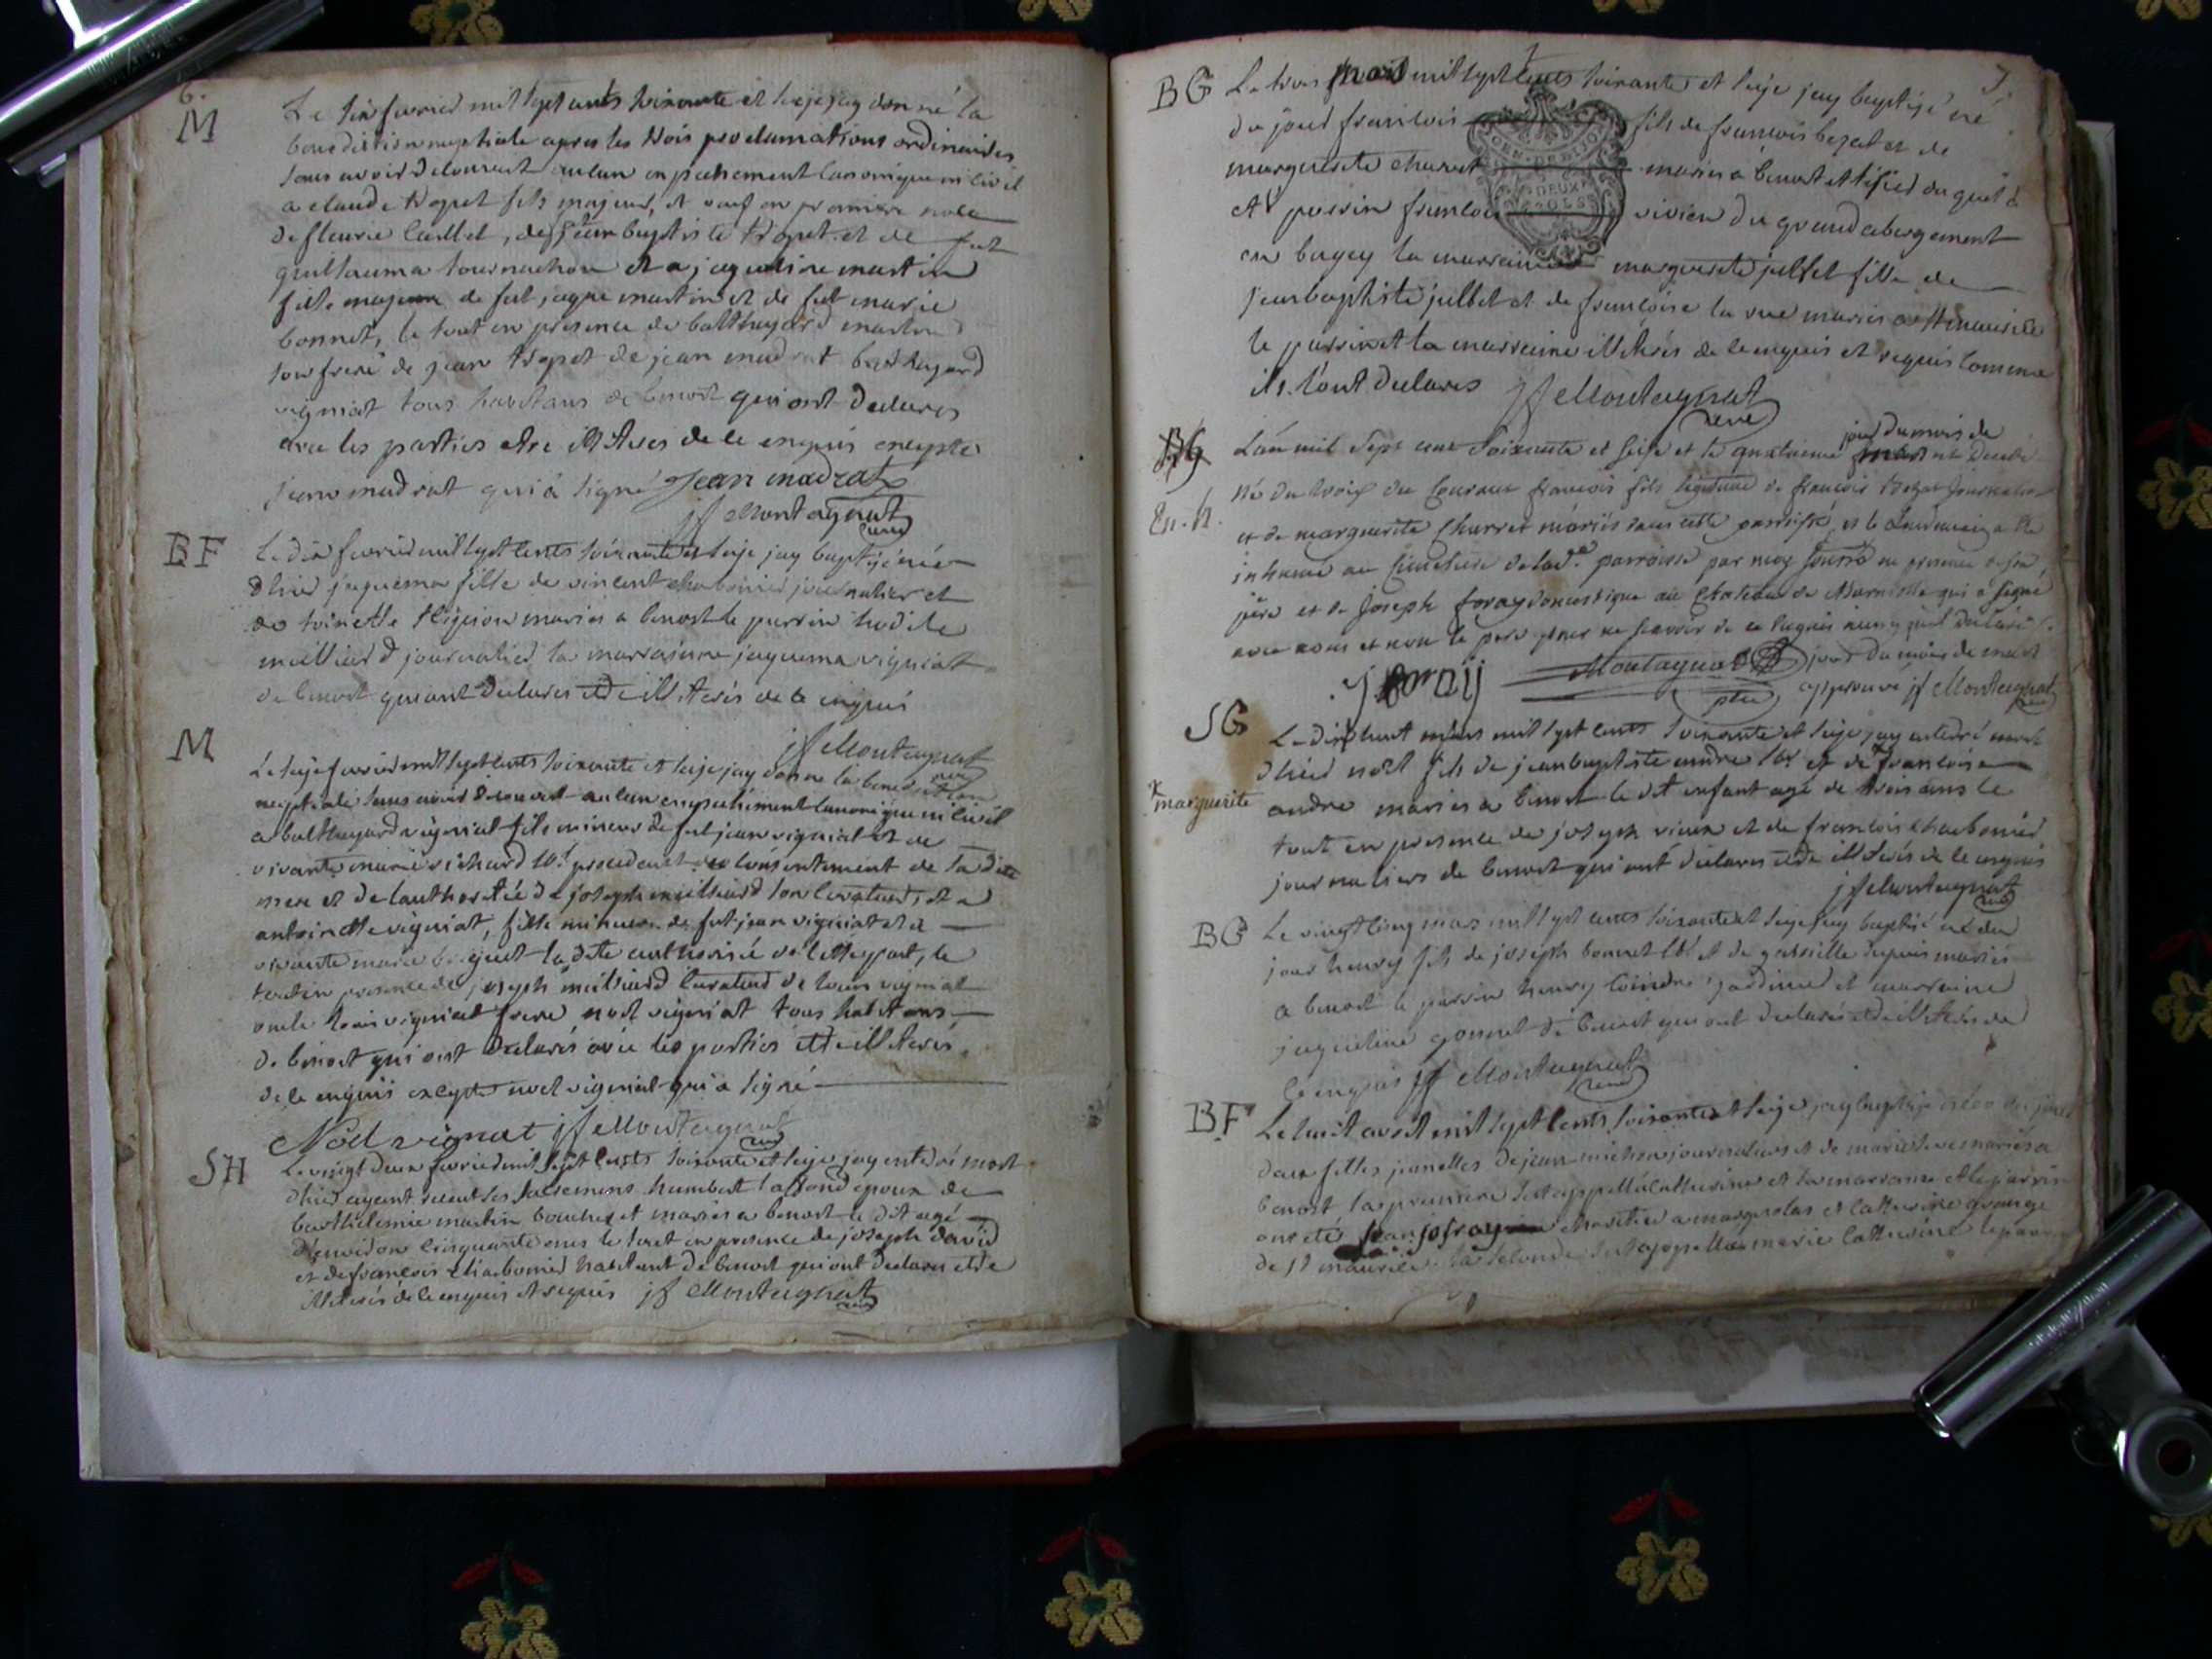 6.
M
Le six fevrier mil sept cents soixante et seize jay donné la
benediction nuptiale apres les trois proclamations ordinaires
sans avoir decouvert aucun enpechement canonique ni civil
a claude tropet fils majeur, et veuf en premiere noce
de fleurie caillet, de jean baptiste tropet et de fut
guillauma tournachon et a jaqueline martin
fille majeure de fut jaque martin et de fut marie
bonnet, le tout en presence de balthazard martin
son frere de jean tropet de jean madrat balthazard
vigniat tous habitans de benost qui ont declares
avec les parties etre illiteres de le enquis excepte
jean madrat qui à signé Jean madrat
jf Montagnat
curé
BF
Le dix fevrier mil sept cents soixante et seize jay baptizé née
dhier jaquema fille de vincent charbonier journalier et
de toinette mariés a benost le parrin
journalier la marraine jaquema vigniat
de benost qui ont declares etre illiterés de ce enquis
jf Montagnat
curé
M
Le seize fevrier mil sept cents soixante et seize jay donné la benediction
nuptiale sans avoir decouvert aucun enpechement canonique ni civil
a balthazard vigniat fils mineur de fut jean vigniat et de
vivante marie richard procedent du consentement de sa dite
mere et de lauthorité de joseph milliard son curateur, et a
antoinette vigniat, fille mineure de fut jean vigniat et de
vivante marie la dite authorisé de cette part, le
tout en presence de joseph milliard curateur de vigniat
oncle vigniat frere noel vigniat tous habitans
de benost qui ont declarés avec les parties etre illiterés
de le enquis excepté noel vigniat qui a signé
Noël vignat jf Montagnat
curé
SH
Le vingt deux fevrier mil sept cents soixante et seize jay enterré mort
dhier ayant receut ses sacremens humbert lafond epoux de
barthelemie martin boucher et mariés a benost le dit agé
denviron cinquante ans le tout en presence de joseph david
et de francois charbonier habitant de benost qui ont declares etre
illiterés de le enquis et requis jf Montagnat
curé
7.
BG
Le trois mars mil sept cents soixante et seize jay baptizé né
du jour francois fils de francois bezat et de
marguerite charvet mariés a benost
et parrin francois vivien du grand abergement
en bugey la marraine marguerite julliet fille de
jean baptiste julliet et de francoise la rue mariés a st maurice
le parrin et la marraine illiterés de le enquis et requis comme
ils l'ont declares jf Montagnat
curé
BG
En. h.
L'an mil sept cent soixante et seise et le quatrieme jour du mois de
mars est decedé
né du trois du courant francois fils legitime de francois Bezat journalier
et de marguerite Charvet mariés dans cette parroisse, et le lendemain a été
inhumé au cimetiere de lad.e parroisse par moy soussigné en presence de son
père et de Joseph foray domestique au chateau de Marnisse qui à signé
avec nous et non le pere pour ne scavoir de ce enquis
j foraij Montagnat
ptre
jour du mois de mars
approuvé jf Montagnat
curé
SG
Le dix huit mars mil sept cents soixante et seize jay enterré mort
dhier noël fils de jean baptiste andre et de francoise
* marguerite
andre mariés a benost le dit enfant agé de trois ans le
tout en presence de joseph vieux et de francois charbonier
journaliers de benost qui ont declares etre illiterés de le enquis
jf Montagnat
curé
BG
Le vingt cinq mars mil sept cents soixante et seize jay baptisé né du
jour henry fils de joseph bonnet et de gabrielle dupuis mariés
a benost le parrin henry cointre jardinier et marraine
jaqueline gonnet de benost qui ont declarés etre illiterés de
le enquis jf Montagnat
curé
BF
Le huit avril mil sept cents soixante et seize jay baptizé nées du jour
deux filles jumelles de jean michon journaliers et de marie mariés a
benost la premiere sest appellé catherine et la marraine et le parrin
ont etés jean jofray a marguerite et catherine grange
de st maurice. la seconde sest appellée marie catherine le parrin